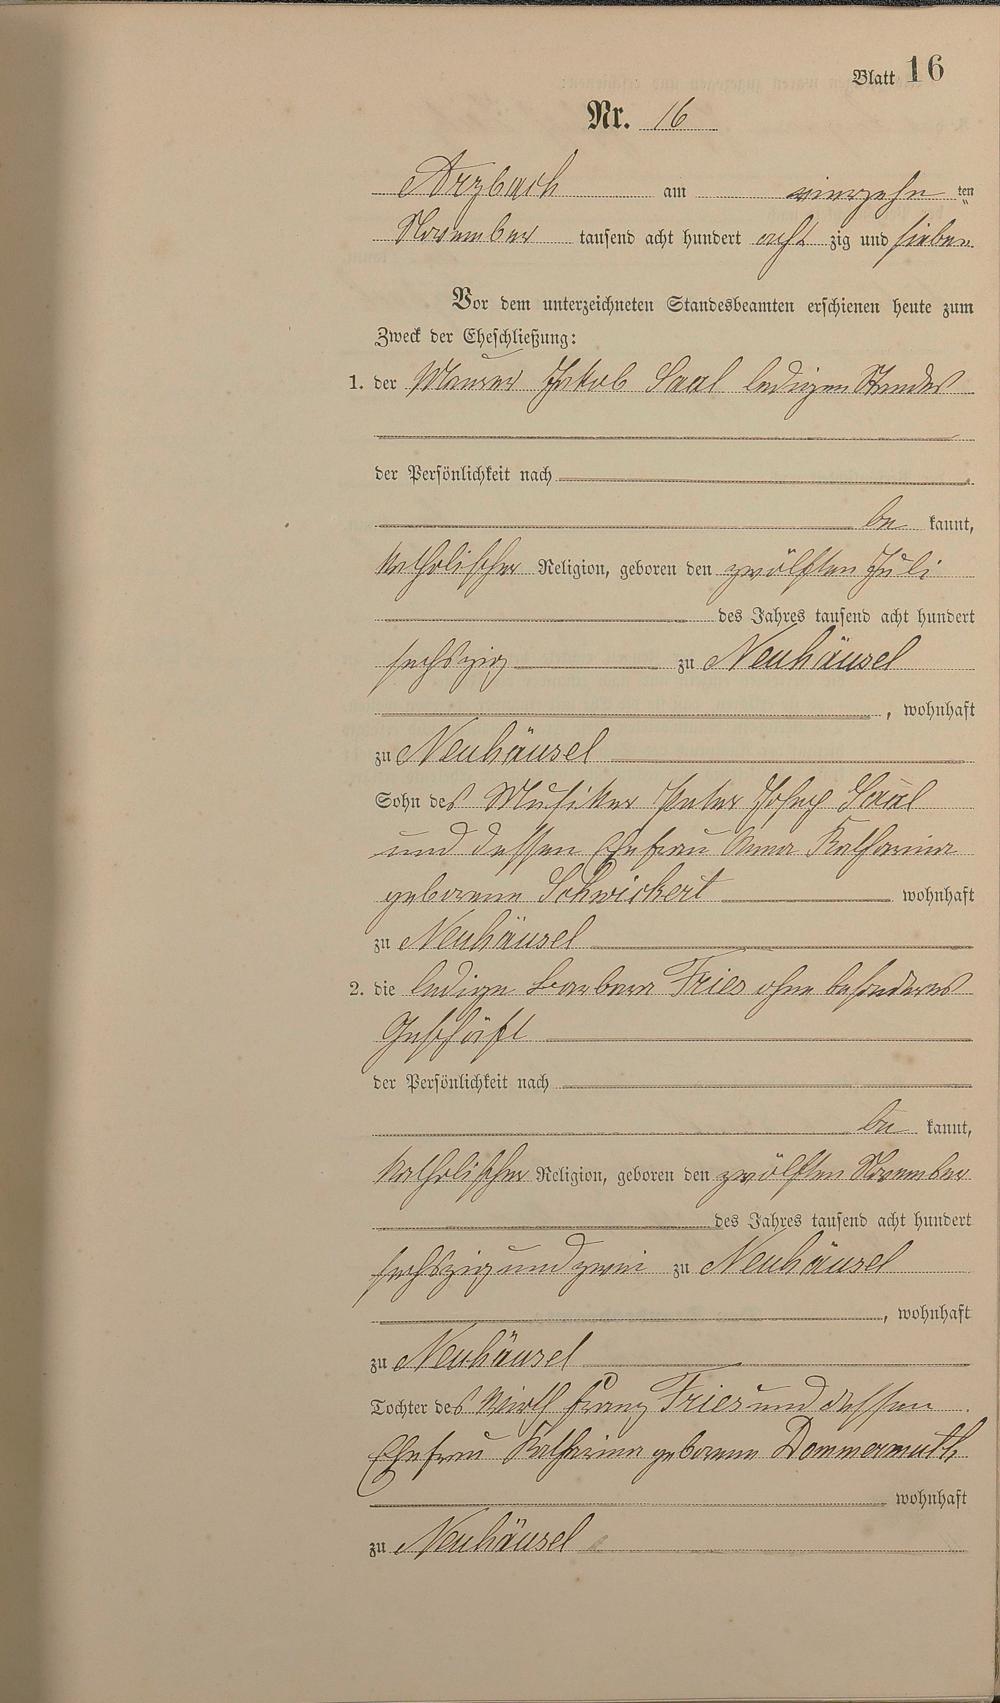 Blatt 16
Nr. 16
Arzbach am vierzehn ten
November tausend acht hundert acht zig und sieben
Vor dem unterzeichneten Standesbeamten erschienen heute zum
Zweck der Eheschließung:
1. der Maurer Jakob Saal ledigen Standes
der Persönlichkeit nach
be kannt,
katholischer Religion, geboren den zwölften Juli
des Jahres tausend acht hundert
sechszig zu Neuhäusel
, wohnhaft
zu Neuhäusel
Sohn des Musiker Peter Josef Saal
und dessen Ehefrau Anna Katharina
geborene Schwickert wohnhaft
zu Neuhäusel
2. die ledige Barbara Fries ohne besonderes
Geschäft
der Persönlichkeit nach
be kannt,
katholischer Religion, geboren den zwölften November
des Jahres tausend acht hundert
sechszig und zwei zu Neuhäusel
, wohnhaft
zu Neuhäusel
Tochter des Wirth Franz Fries und dessen
Ehefrau Katharina geborene Dommermuth
wohnhaft
zu Neuhäusel